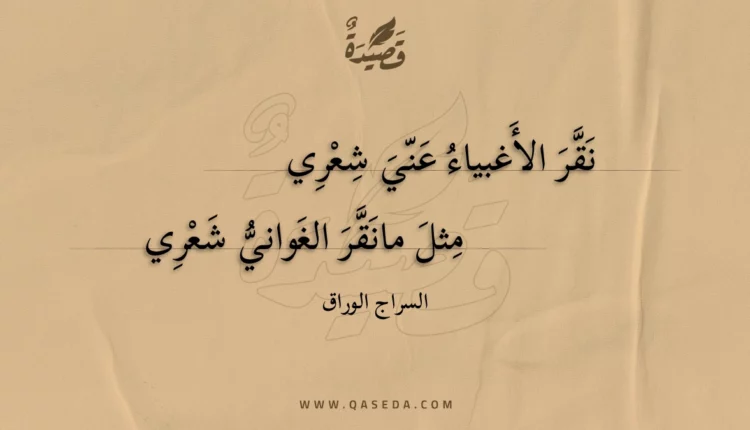 قَصِيدَةٌ
نَقَّرَ الأَغبياءُ عَنّيَ شِعْرِي
مِثلَ مانَقَّرَ الغَوانيُّ شَعْرِي
السراج الوراق
WWW.QASEDA.COM